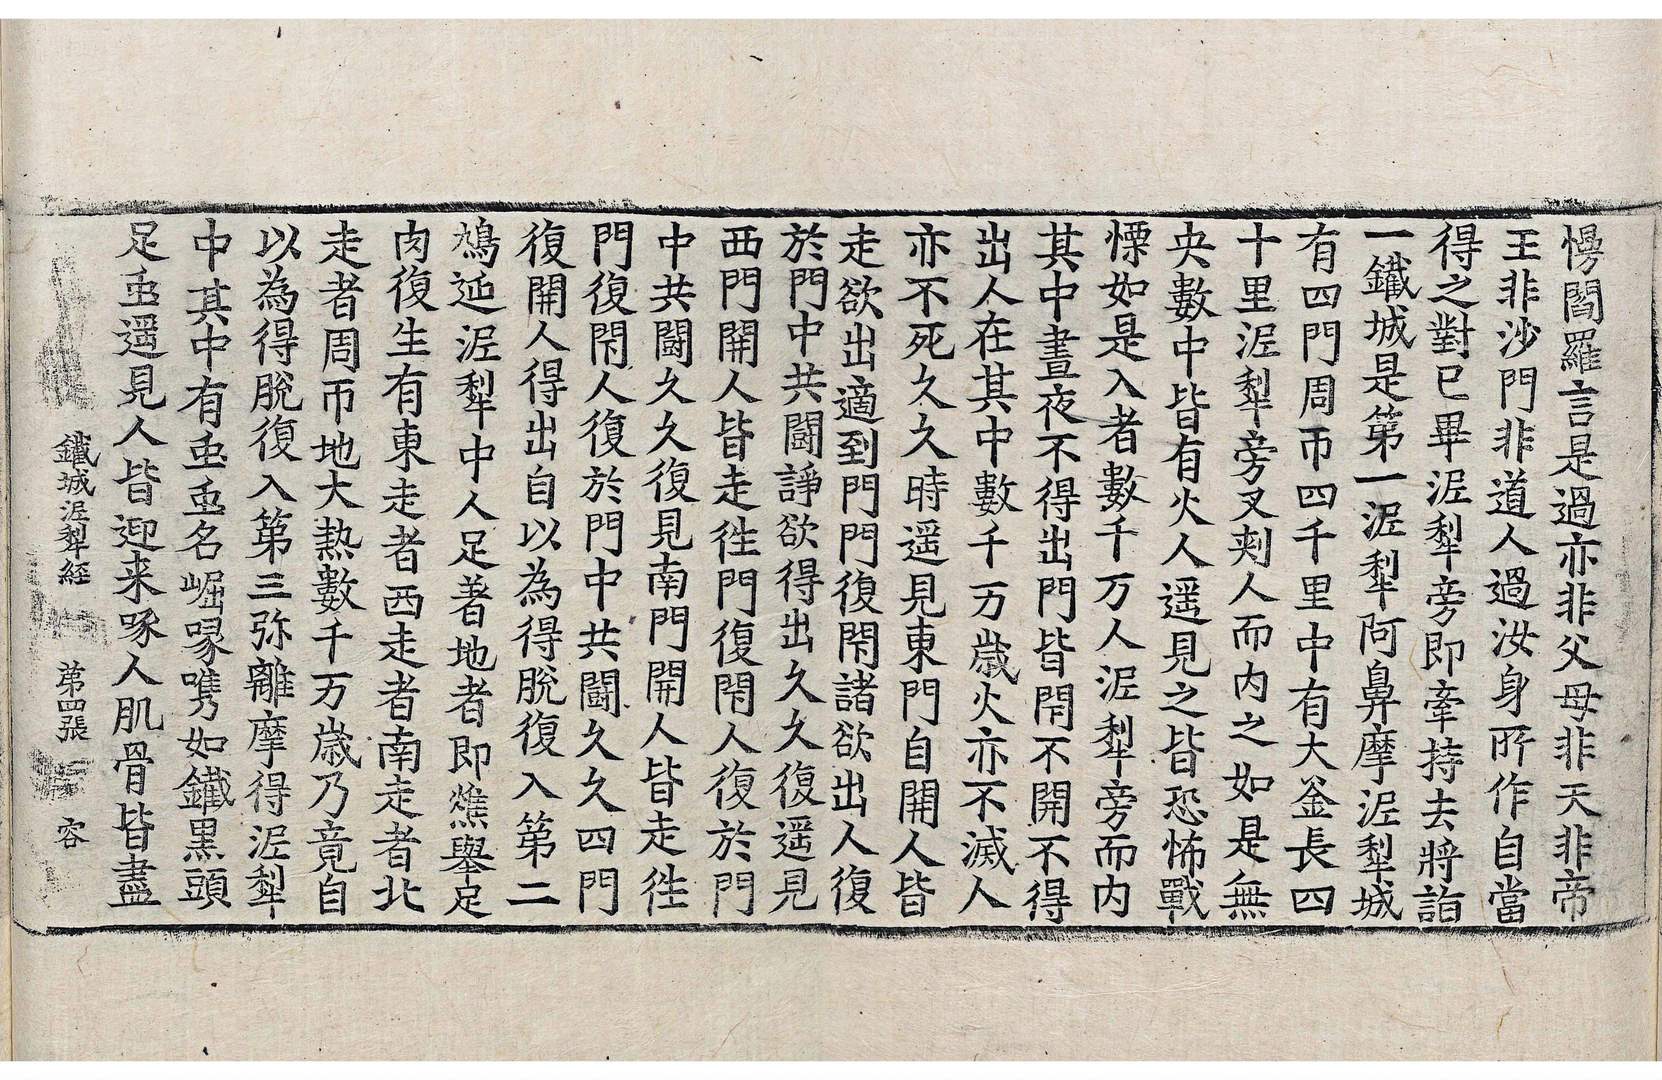 㥬閻羅言是過亦非父母非天非帝
王非沙門非道人過汝身所作自當
得之對已畢泥犁旁即牽持去將詣
一鐵城是第一泥犁阿鼻摩泥犁城
有四門周帀四千里中有大釜長四
十里泥犁旁叉刾人而內之如是無
央數中皆有火人遥見之皆恐怖戰
慄如是入者數千万人泥犁旁而内
其中晝夜不得出門皆閇不開不得
出人在其中數千万歲火亦不滅人
亦不死久久時遥見東門自開人皆
走欲出適到門門復閇諸欲出人復
於門中共鬪諍欲得出久久復遥見
西門開人皆走徃門復閇人復於門
中共鬪久久復見南門開人皆走徃
門復閇人復於門中共鬪久久四門
復開人得出自以為得脫復入第二
鳩延泥犁中人足著地者即燋舉足
肉復生有東走者西走者南走者北
走者周帀地大熱數千万歲乃竟自
以為得脫復入第三弥離摩得泥犁
中其中有䖝䖝名崛㖨㗦如鐵黑頭
足䖝遥見人皆迎来啄人肌骨皆盡
鐵城泥犁經 第四張 容